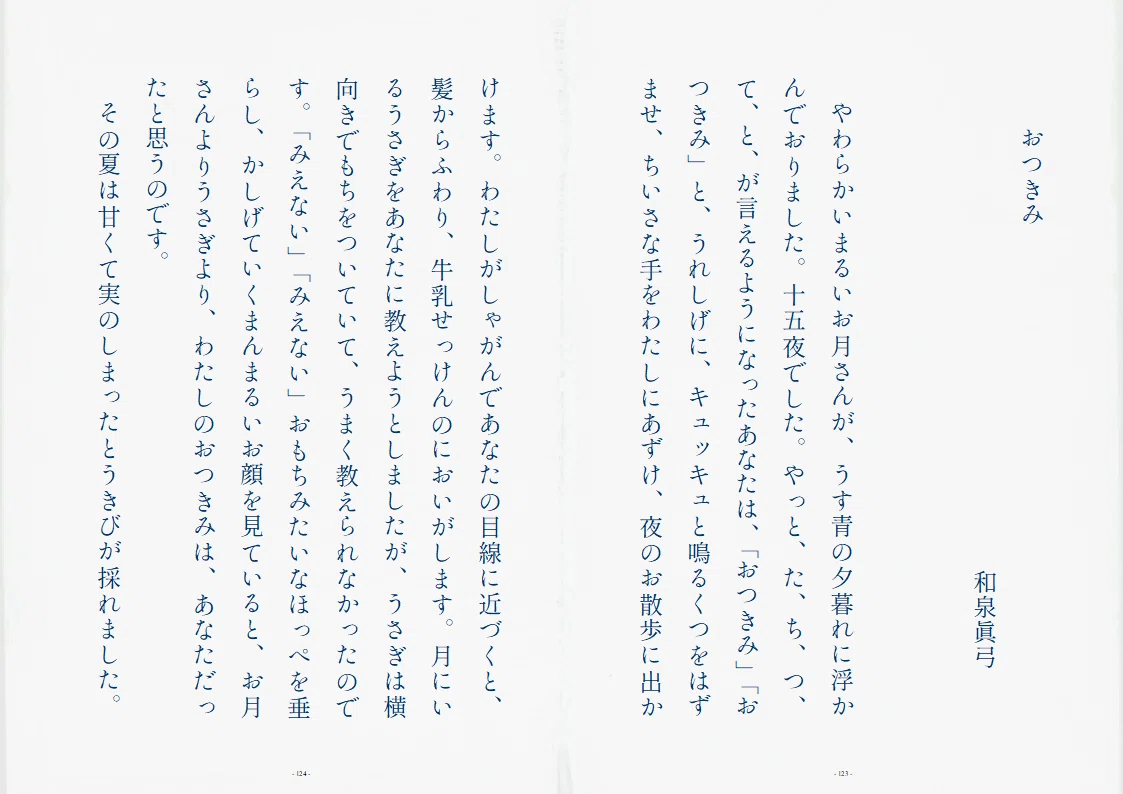 おつきみ
和泉眞弓
やわらかいまるいお月さんが、うす青の夕暮れに浮か
んでおりました。十五夜でした。やっと、た、ち、つ、
て、と、が言えるようになったあなたは、「おつきみ」「お
つきみ」と、うれしげに、キュッキュと鳴るくつをはず
ませ、ちいさな手をわたしにあずけ、夜のお散歩に出か
- 123 -
けます。わたしがしゃがんであなたの目線に近づくと、
髪からふわり、牛乳せっけんのにおいがします。月にい
るうさぎをあなたに教えようとしましたが、うさぎは横
向きでもちをついていて、うまく教えられなかったので
す。「みえない」「みえない」おもちみたいなほっぺを垂
らし、かしげていくまんまるいお顔を見ていると、お月
さんよりうさぎより、わたしのおつきみは、あなただっ
たと思うのです。
その夏は甘くて実のしまったとうきびが採れました。
- 124 -